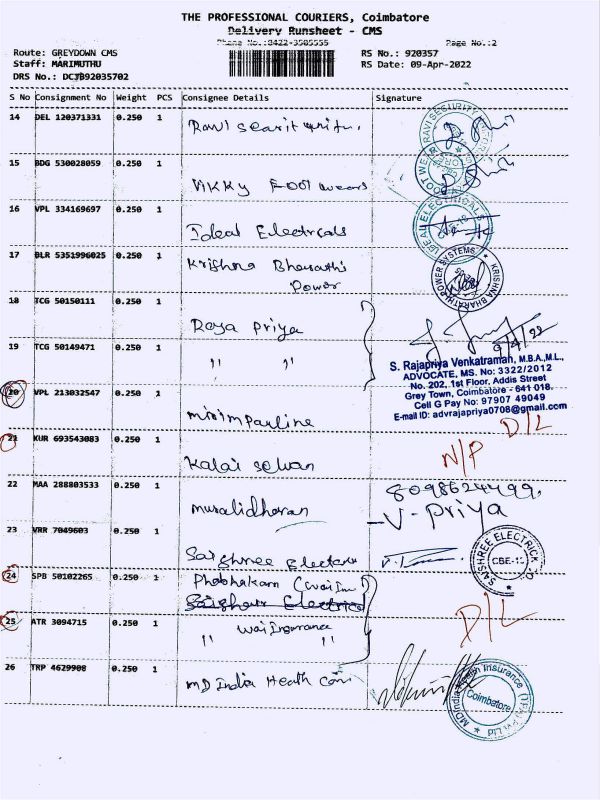 THE PROFESSIONAL COURIERS, Coimbatore
Delivery Runsheet - CMS
Phone No.:0422-3505555 Page No.:2
Route: GREYDOWN CMS RS No.: 920357
Staff: MARIMUTHU RS Date: 09-Apr-2022
DRS No.: DCJB92035702
S No Consignment No Weight PCS Consignee Details Signature
14 DEL 120371331 0.250 1
Ravi
RAVI SECURITY
15 BDG 530028059 0.250 1
VIKKy Foot wears
FOOT WEAR
16 VPL 334169697 0.250 1
Ideal Electricals
ELECTRICALS
17 BLR 5351996025 0.250 1
Krishna Bharathi
Power
KRISHNA BHARATH POWER SYSTEMS
18 TCG 50150111 0.250 1
Roja Priya
9/4/22
19 TCG 50149471 0.250 1
" "
S. Rajapriya Venkatraman, M.B.A.,M.L.,
ADVOCATE, MS. No: 3322/2012
No. 202, 1st Floor, Addis Street
Grey Town, Coimbatore - 641 018.
Cell G Pay No: 97907 49049
E-mail ID: advrajapriya0708@gmail.com
20 VPL 213032547 0.250 1
D/L
21 KUR 693543083 0.250 1
Kalai Selvan
N/P
22 MAA 288803533 0.250 1
muralidharan
8098624499
V-Priya
23 VRR 7049603 0.250 1
Saishree Electric
SAISHREE ELECTRIC CO
CBE-18
24 SPB 50102265 0.250 1
25 ATR 3094715 0.250 1
Insurance
" "
D/L
26 TRP 4629908 0.250 1
MD India Heath
MDIndia Health Insurance (TPA) Pvt Ltd
Coimbatore